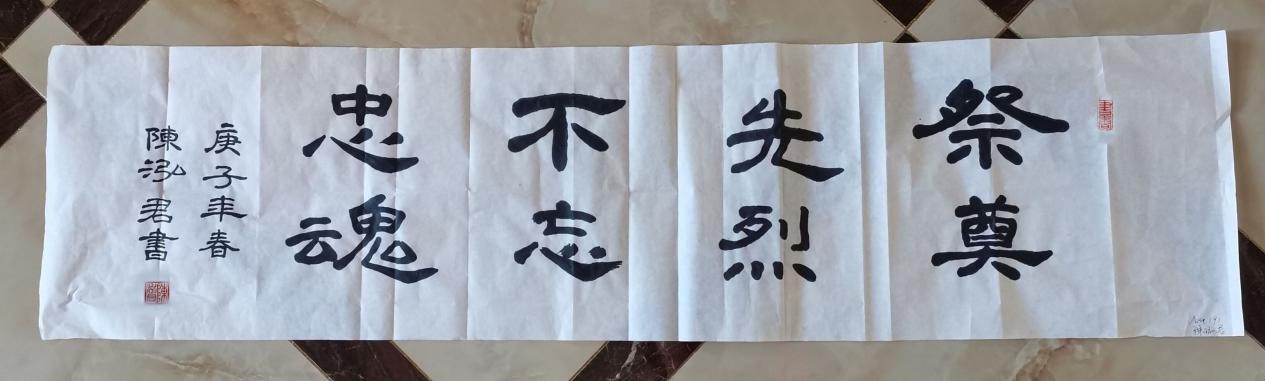 祭奠
先烈
不忘
忠魂
庚子年春
陳泓君書